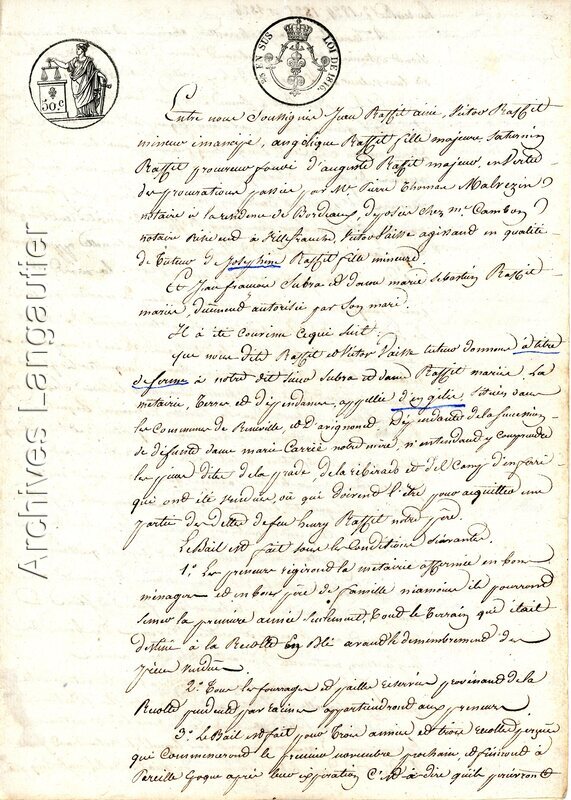 50.C
EN SUS
LOI DE 1816.
Archives Langautier
Entre nous Soussignés Jean Raffit ainé, Victor Raffit
mineur emancipé, angelique Raffit fille majeure, Saturnin
Raffit procureur fondé d'auguste Raffit majeur, en Vertu
de procuration passée par Me Pierre Thomas Malvezin
notaire à la residence de Bordeaux, deposée chez me Cambon
notaire Residend à Villefranche, Victor Vaisse agissand en qualité
de tuteur de Josephine Raffit fille mineure.
Et Jean francois Subra et dame marie Sebastien Raffit
mariés, dument autorisée par Son mari.
Il a été Convenu Ce qui Suit.
que nous dits Raffit et Victor Vaisse tuteur donnons à titre
de ferme à notre dit Sieur Subra et dame Raffit mariés. La
métairie, Terres et dépendances, appellée d'en gelis, Situés dans
les Communes de Renneville, et d'avignonet. Dépendants de la Succession
de défunte dame marie Carrié notre mère, n'entendand y Comprendre
les pieces dites de la prade, de la ribeirals et del Camp
qui ont été vendues, où qui doivent l'être pour acquitter une
partie des dettes de feu henry Raffit notre père.
Le Bail est fait sous les Conditions Suivantes.
1.° Les preneurs régiront la métairie affermée en bons
ménagers et en bons père de famille néamoins ils pourront
Semer la premiere année Seulement Tout le Terrain qui était
destiné à la Recolte En Blé avant le demembrement des
pièces vendues.
2.° Tous les fourrages et paille et Servies provenand de la
Recolte pendente par racines appartiendront aux preneurs
3.° Le Bail est fait pour Trois années et trois recoltes
qui Commenceront le premier novembre prochain, et finiront à
Pareille Epoque après leur expiration C'est à dire qu'ils